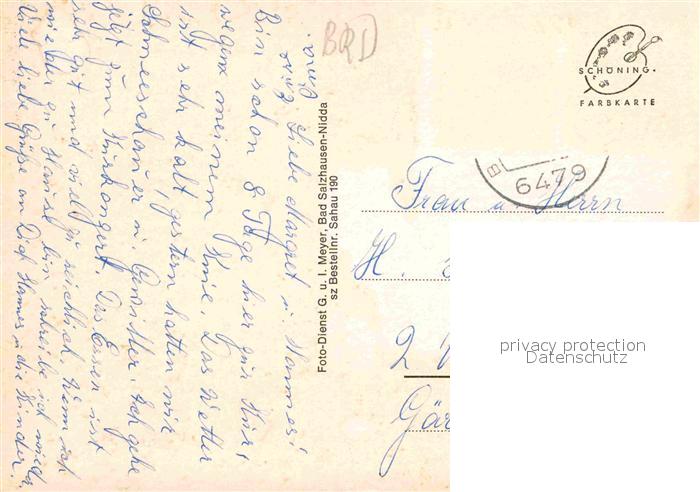 Liebe Margret u. Hannes!
Bin schon 8 Tage hier zur Kur,
wegen meinem Knie. Das Wetter
ist sehr kalt, gestern hatten wir
Schneeschauer u. Gewitter. Ich gehe
jetzt zum Kurkonzert. Das Essen ist
sehr gut und viel zu reichlich. Wenn ich
wieder zu Hause bin schreibe ich wieder.
Viele liebe Grüße an Dich Hannes u. die Kinder.
BRD
Foto-Dienst G. u. I. Meyer, Bad Salzhausen-Nidda
sz Bestellnr. Sahau 190
SCHÖNING.
FARBKARTE
6479
Frau u. Herrn
H.
2
Gär
privacy protection
Datenschutz